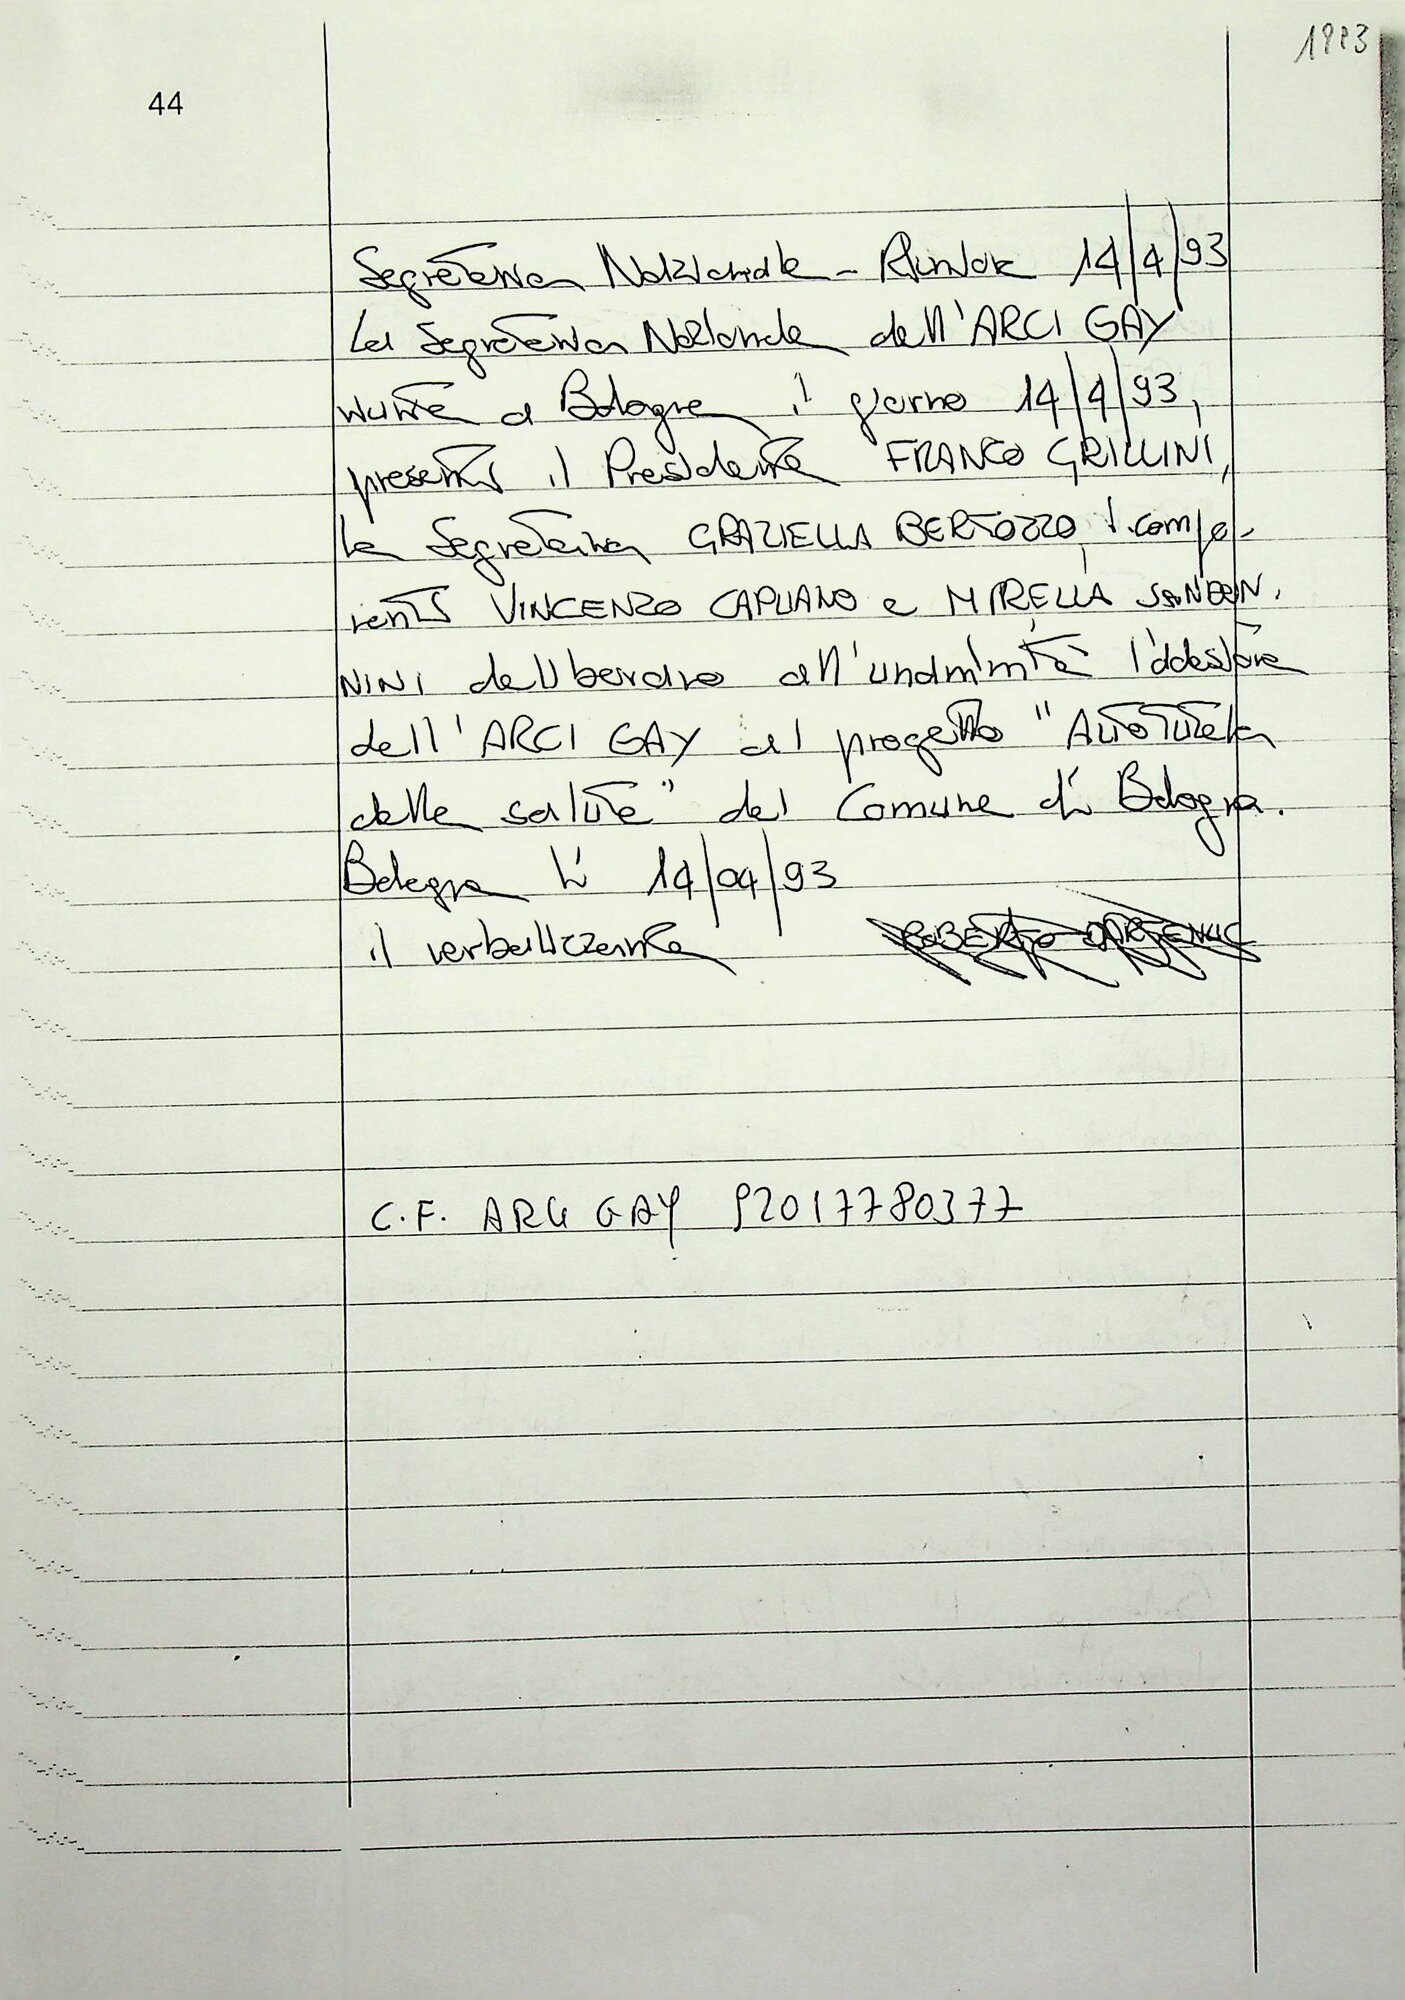 1993
44
Segreteria Nazionale - Riunione 14/4/93
La Segreteria Nazionale dell'ARCI GAY
riunita a Bologna il giorno 14/4/93,
presenti il Presidente FRANCO GRILLINI,
la Segretaria GRAZIELLA BERTOZZO, i compo-
nenti VINCENZO CAPUANO e MIRELLA SANDON.
NINI deliberano all'unanimità l'adesione
dell'ARCI GAY al progetto "Autotutela
della salute" del Comune di Bologna.
Bologna lì 14/04/93
il verbalizzante ROBERTO
C.F. ARCI GAY 92017780377